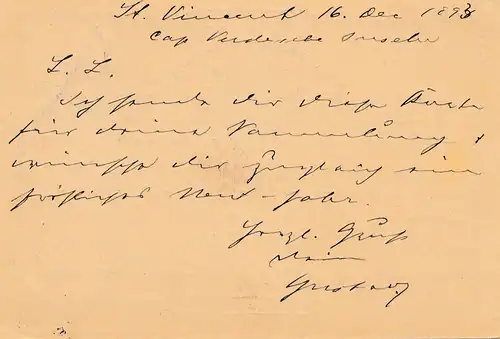 St. Vincent 16. Dec 1893
Cap Verdesche Inseln
L. L.
Ich sende dir diese Karte
für deine Sammlung &
wünsche dir zugleich ein
fröhliches Neu-Jahr.
Herzl. Gruß
dein
Gustav